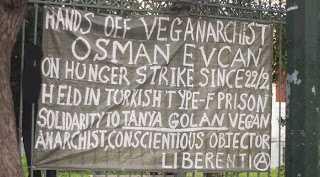 HANDS OFF VEGANARCHIST
OSMAN EVCAN
ON HUNGER STRIKE SINCE 22/2
HELD IN TURKISH TYPE-F PRISON
SOLIDARITY TO TANYA GOLAN VEGAN
ANARCHIST, CONSCIENTIOUS OBJECTOR
LIBERENTIA